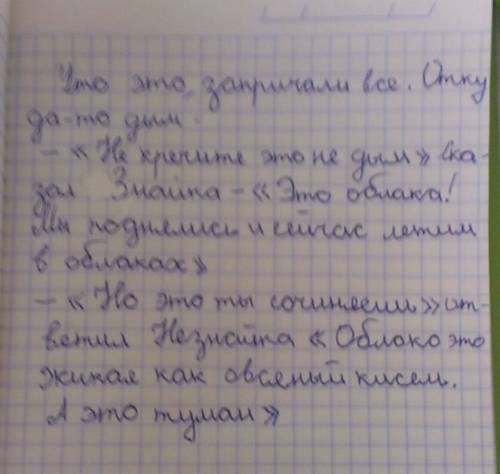 Что это, запричали все. Отку
да-то дым.
- «Не кречите это не дым» Ска-
зал Знайка - «Это облака!
Мы поднялись и сейчас летим
в облаках»
- «Но это ты сочиняеш» от-
ветил Незнайка «Облако это
жикая как овсеный кисел.
А это туман»